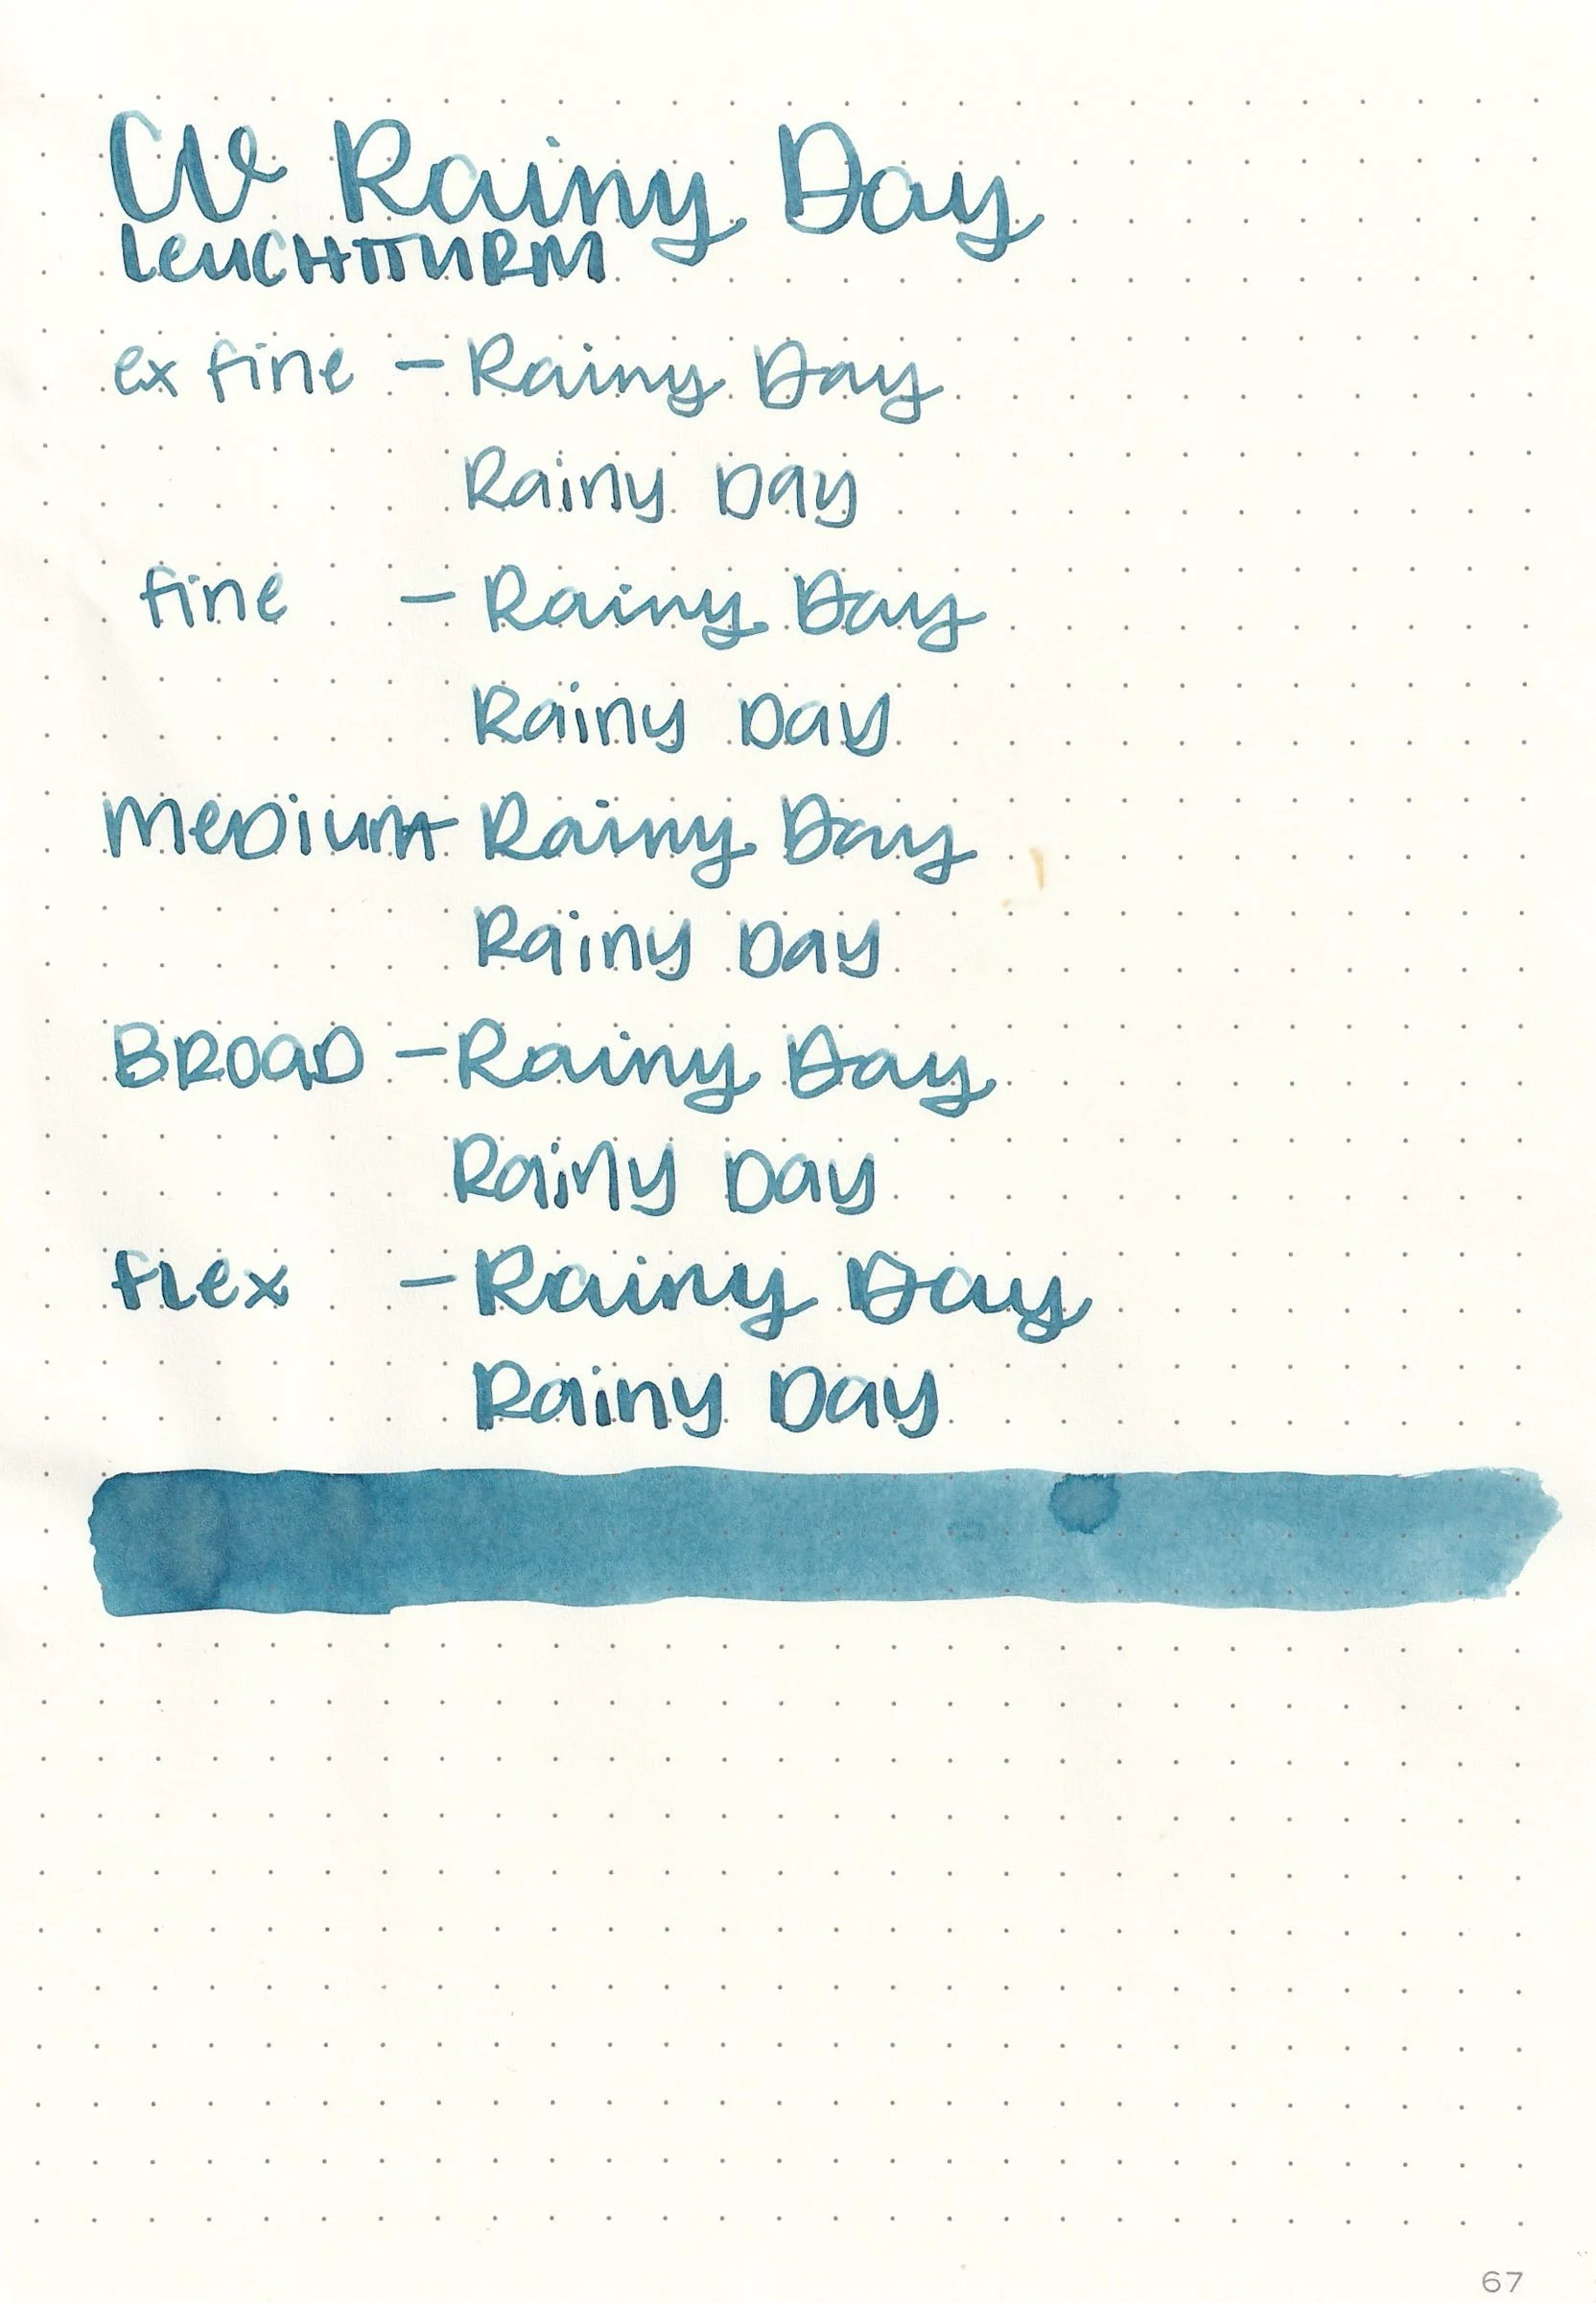 CV Rainy Day
LEUCHTTURM
ex fine - Rainy Day
Rainy Day
fine - Rainy Day
Rainy Day
MEDium - Rainy Day
Rainy Day
BROAD - Rainy Day
Rainy Day
FLEX - Rainy Day
Rainy Day
67